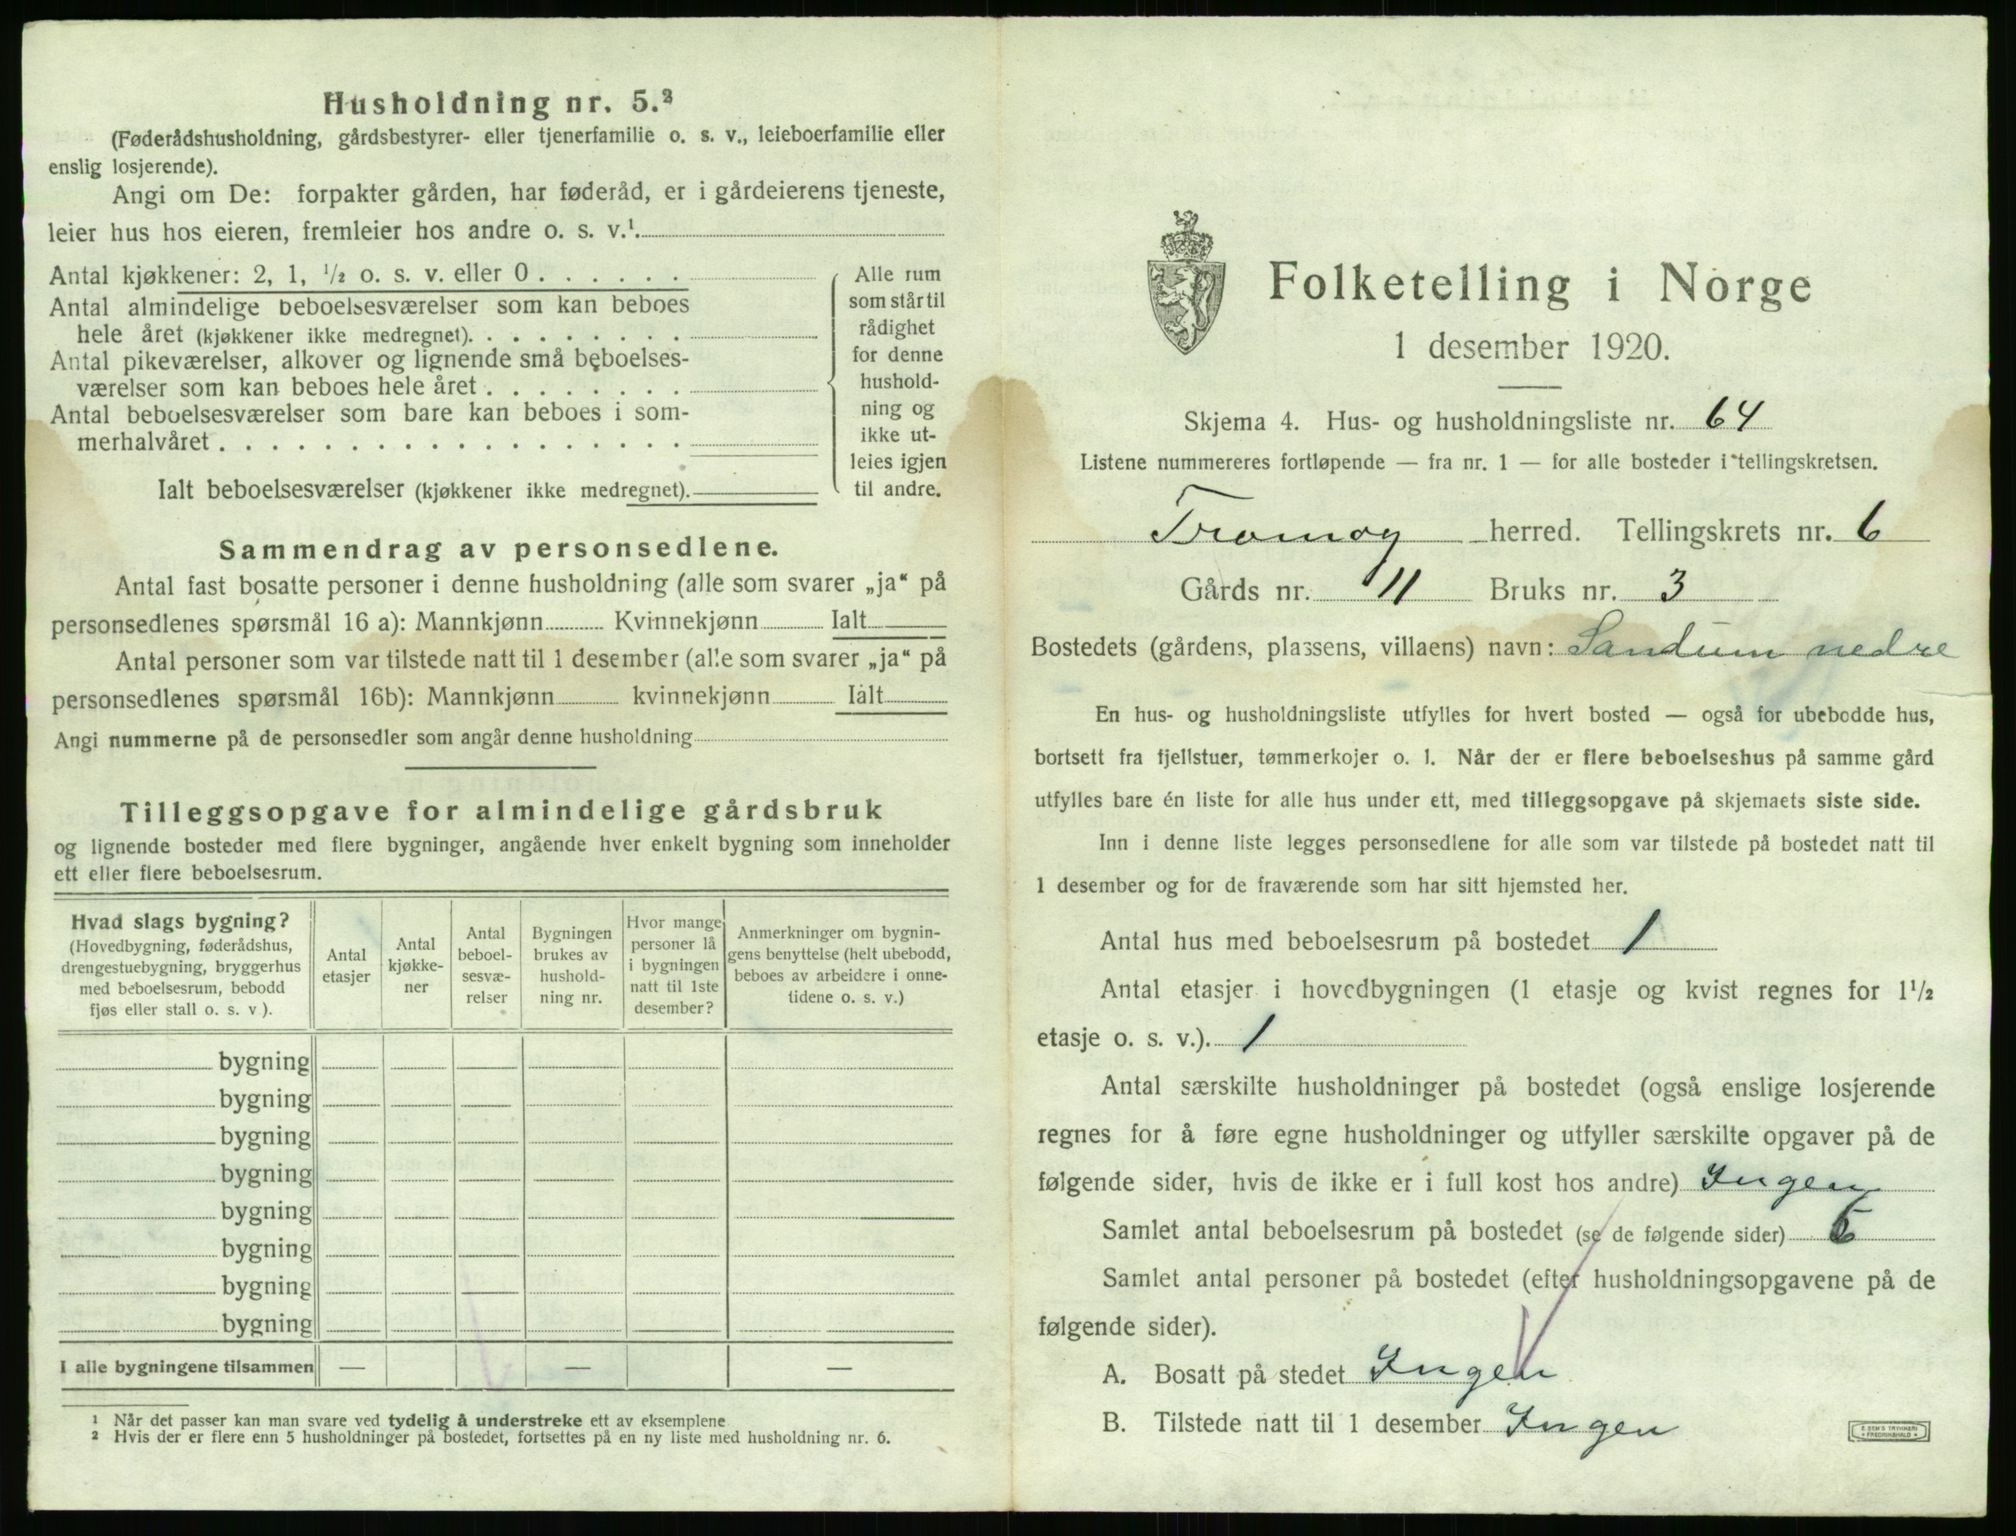 Husholdning nr. 5.²
(Føderådshusholdning, gårdsbestyrer- eller tjenerfamilie o. s. v., leieboerfamilie eller
enslig losjerende).
Angi om De: forpakter gården, har føderåd, er i gårdeierens tjeneste,
leier hus hos eieren, fremleier hos andre o. s. v.¹
Antal kjøkkener: 2, 1, ½ o. s. v. eller 0 . . . . . .
Antal almindelige beboelsesværelser som kan beboes
hele året (kjøkkener ikke medregnet). . . . . . . . .
Antal pikeværelser, alkover og lignende små beboelses-
værelser som kan beboes hele året . . . . . . . .
Antal beboelsesværelser som bare kan beboes i som-
merhalvåret . . . . . . . . . . . . . . . . . .
Ialt beboelsesværelser (kjøkkener ikke medregnet).
Alle rum
som står til
rådighet
for denne
hushold-
ning og
ikke ut-
leies igjen
til andre.
Sammendrag av personsedlene.
Antal fast bosatte personer i denne husholdning (alle som svarer „ja“ på
personsedlenes spørsmål 16 a): Mannkjønn Kvinnekjønn Ialt
Antal personer som var tilstede natt til 1 desember (alle som svarer „ja“ på
personsedlenes spørsmål 16b): Mannkjønn kvinnekjønn Ialt
Angi nummerne på de personsedler som angår denne husholdning
Tilleggsopgave for almindelige gårdsbruk
og lignende bosteder med flere bygninger, angående hver enkelt bygning som inneholder
ett eller flere beboelsesrum.
Hvad slags bygning?
(Hovedbygning, føderådshus,
drengestuebygning, bryggerhus
med beboelsesrum, bebodd
fjøs eller stall o. s. v ).
Antal
etasjer
Antal
kjøkke-
ner
Antal
beboel-
sesvæ-
relser
Bygningen
brukes av
hushold-
ning nr.
Hvor mange
personer lå
i bygningen
natt til 1ste
desember?
Anmerkninger om bygnin-
gens benyttelse (helt ubebodd,
beboes av arbeidere i onne-
tidene o. s. v.)
bygning
bygning
bygning
bygning
bygning
bygning
bygning
bygning
I alle bygningene tilsammen — — —
¹ Når det passer kan man svare ved tydelig å understreke ett av eksemplene
² Hvis der er flere enn 5 husholdninger på bostedet, fortsettes på en ny liste med husholdning nr. 6.
Folketelling i Norge
1 desember 1920.
Skjema 4. Hus- og husholdningsliste nr. 64
Listene nummereres fortløpende — fra nr. 1 — for alle bosteder i tellingskretsen.
Tromøy herred. Tellingskrets nr. 6
Gårds nr. 11 Bruks nr. 3
Bostedets (gårdens, plassens, villaens) navn: Sandum nedre
En hus- og husholdningsliste utfylles for hvert bosted — også for ubebodde hus,
bortsett fra fjellstuer, tømmerkojer o. l. Når der er flere beboelseshus på samme gård
utfylles bare én liste for alle hus under ett, med tilleggsopgave på skjemaets siste side.
Inn i denne liste legges personsedlene for alle som var tilstede på bostedet natt til
1 desember og for de fraværende som har sitt hjemsted her.
Antal hus med beboelsesrum på bostedet 1
Antal etasjer i hovedbygningen (1 etasje og kvist regnes for 1½
etasje o. s. v.). 1
Antal særskilte husholdninger på bostedet (også enslige losjerende
regnes for å føre egne husholdninger og utfyller særskilte opgaver på de
følgende sider, hvis de ikke er i full kost hos andre) Ingen
Samlet antal beboelsesrum på bostedet (se de følgende sider)
Samlet antal personer på bostedet (efter husholdningsopgavene på de
følgende sider).
A. Bosatt på stedet Ingen
B. Tilstede natt til 1 desember Ingen
E. SEM'S TRYKKERI
FREDRIKSHALD